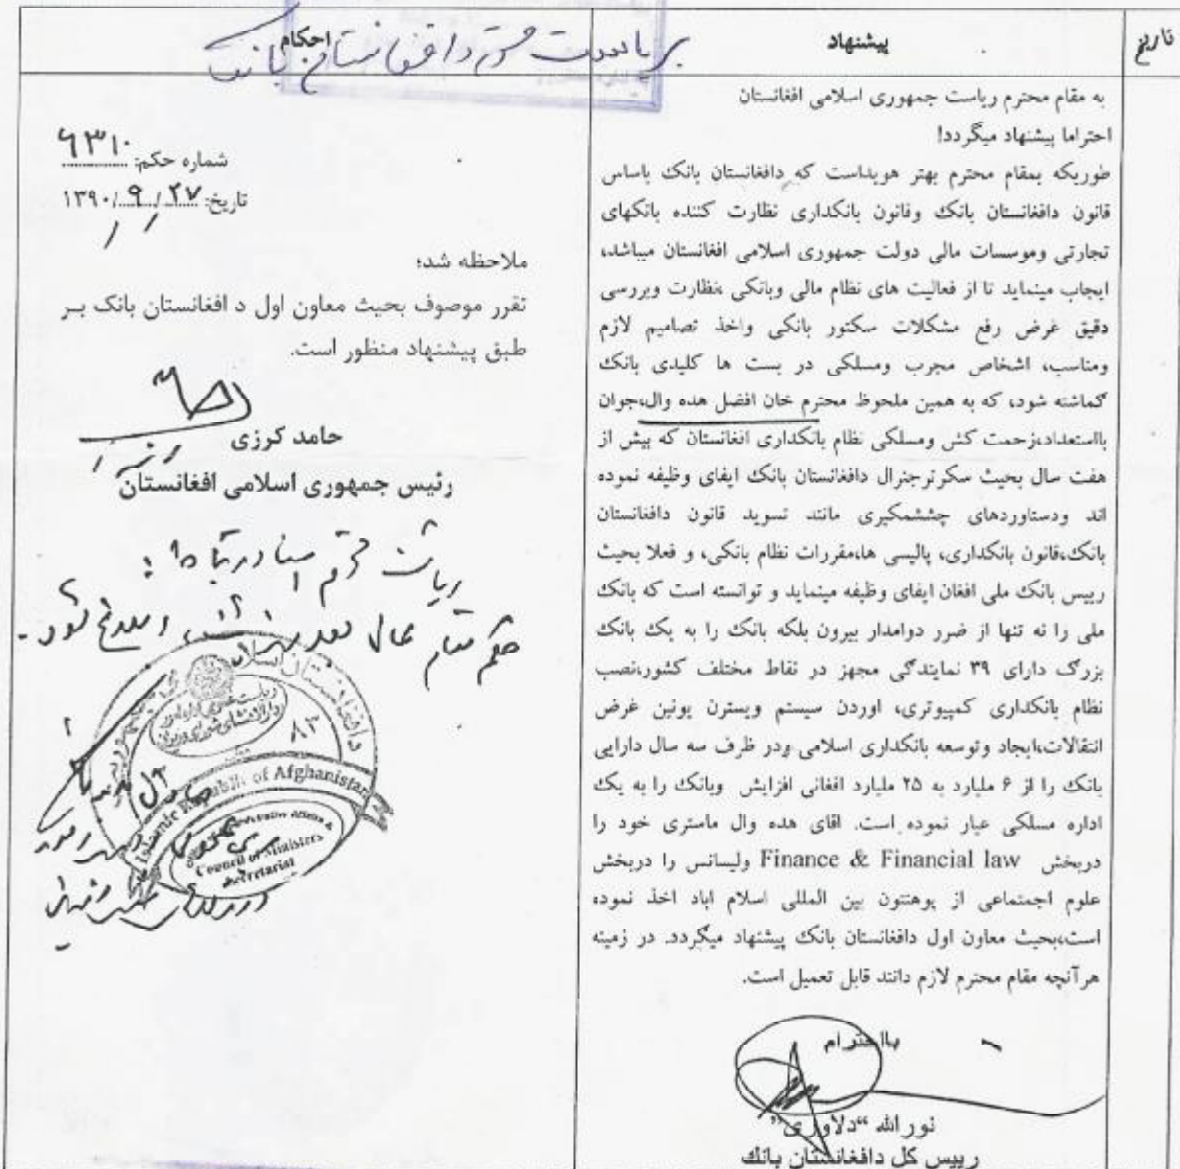 تاریخ
پیشنهاد
احکام
به مقام محترم ریاست جمهوری اسلامی افغانستان
احتراما پیشنهاد میگردد!
طوریکه بمقام محترم بهتر هویداست که دافغانستان بانک باساس
قانون دافغانستان بانک وقانون بانکداری نظارت کننده بانکهای
تجارتی وموسسات مالی دولت جمهوری اسلامی افغانستان میباشد،
ایجاب مینماید تا از فعالیت های نظام مالی وبانکی ،نظارت وبررسی
دقیق غرض رفع مشکلات سکتور بانکی واخذ تصامیم لازم
ومناسب، اشخاص مجرب ومسلکی در بست ها کلیدی بانک
گماشته شود، که به همین ملحوظ محترم خان افضل هده وال،جوان
بااستعداد،زحمت کش ومسلکی نظام بانکداری افغانستان که بیش از
هفت سال بحیث سکرترجنرال دافغانستان بانک ایفای وظیفه نموده
اند ودستاوردهای چششمگیری مانند تسوید قانون دافغانستان
بانک،قانون بانکداری، پالیسی ها،مقررات نظام بانکی، و فعلا بحیث
رییس بانک ملی افغان ایفای وظیفه مینماید و توانسته است که بانک
ملی را نه تنها از ضرر دوامدار بیرون بلکه بانک را به یک بانک
بزرگ دارای ۳۹ نمایندگی مجهز در نقاط مختلف کشور،نصب
نظام بانکداری کمپیوتری، اوردن سیستم ویسترن یونین غرض
انتقالات،ایجاد وتوسعه بانکداری اسلامی ودر ظرف سه سال دارایی
بانک را از ۶ ملیارد به ۲۵ ملیارد افغانی افزایش وبانک را به یک
اداره مسلکی عیار نموده است. اقای هده وال ماستری خود را
دربخش Finance & Financial law ولیسانس را دربخش
علوم اجمتماعی از پوهنتون بین المللی اسلام اباد اخذ نموده
است،بحیث معاون اول دافغانستان بانک پیشنهاد میگردد. در زمینه
هرآنچه مقام محترم لازم دانند قابل تعمیل است.
بااحترام
نورالله “دلاوری”
رییس کل دافغانستان بانک
شماره حکم: ۶۳۱۰
تاریخ: ۲۷/۹/۱۳۹۰
ملاحظه شد؛
تقرر موصوف بحیث معاون اول د افغانستان بانک بـر
طبق پیشنهاد منظور است.
حامد کرزی
رئیس جمهوری اسلامی افغانستان
Islamic Republic of Afghanistan
Council of Ministers
Secretariat